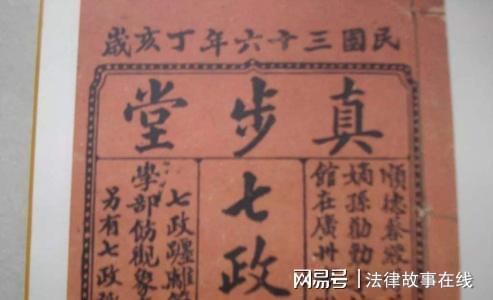 民國三十六年丁亥歲
真步堂
順德蔡最
嫡孫勷勤
館在廣州
七政
七政躔離
學部仿觀象
另有七政
网易号 | 法律故事在线